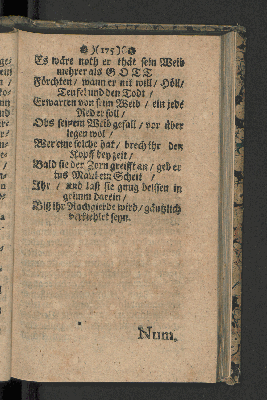 )( 175 )(
Es wäre noth er thät sein Weib
mehrer als GOTT
Förchten / wann er nit will / Höll /
Teufel und den Todt /
Erwarten von sein Weib / ein jede
Red er soll /
Obs seinem Weib gefall / vor über
legen wol /
Wer eine solche hat / brech ihr den
Kopff bey zeit /
Bald sie der Zorn greifft an / geb er
ins Maul ein Scheit /
Ihr / und laß sie gnug beissen in
grimm darein /
Biß ihr Rachgierde wird / gäntzlich
verziehlet seyn.
Num.